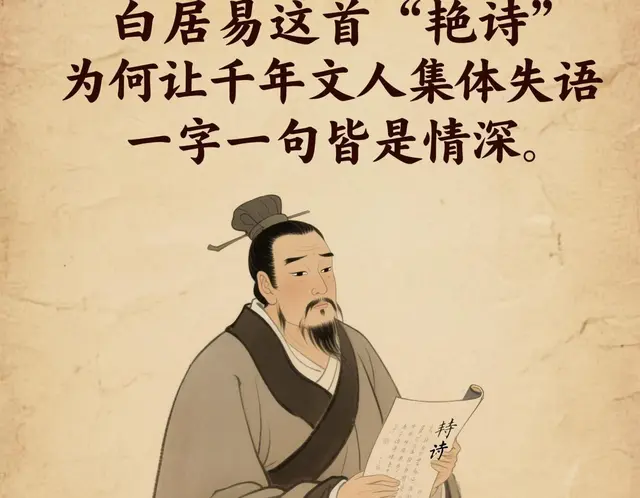 白居易这首“艳诗”
为何让千年文人集体失语
一字一句皆是情深。
诗